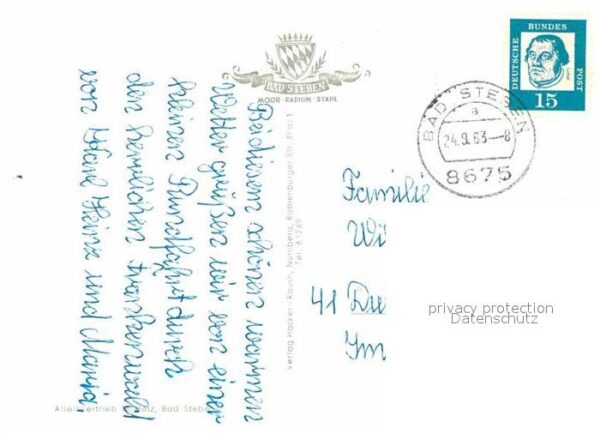 BAD STEBEN
MOOR-RADIUM STAHL
DEUTSCHE BUNDES POST
Luther
15
BAD STEBEN
a
24.9.63--8
8675
Bei diesem schönen warmen
Wetter grüßen wir von einer
kleinen Rundfahrt durch
den herrlichen Frankenwald
von Karl Heinz und Maria
Verlag Hacker-Rauch, Nürnberg, Rothenburger Str. 39a/1
Tel. 61269
Familie
Wi
41 Du
Im
privacy protection
Datenschutz
Alleinvertrieb, Bad Steben